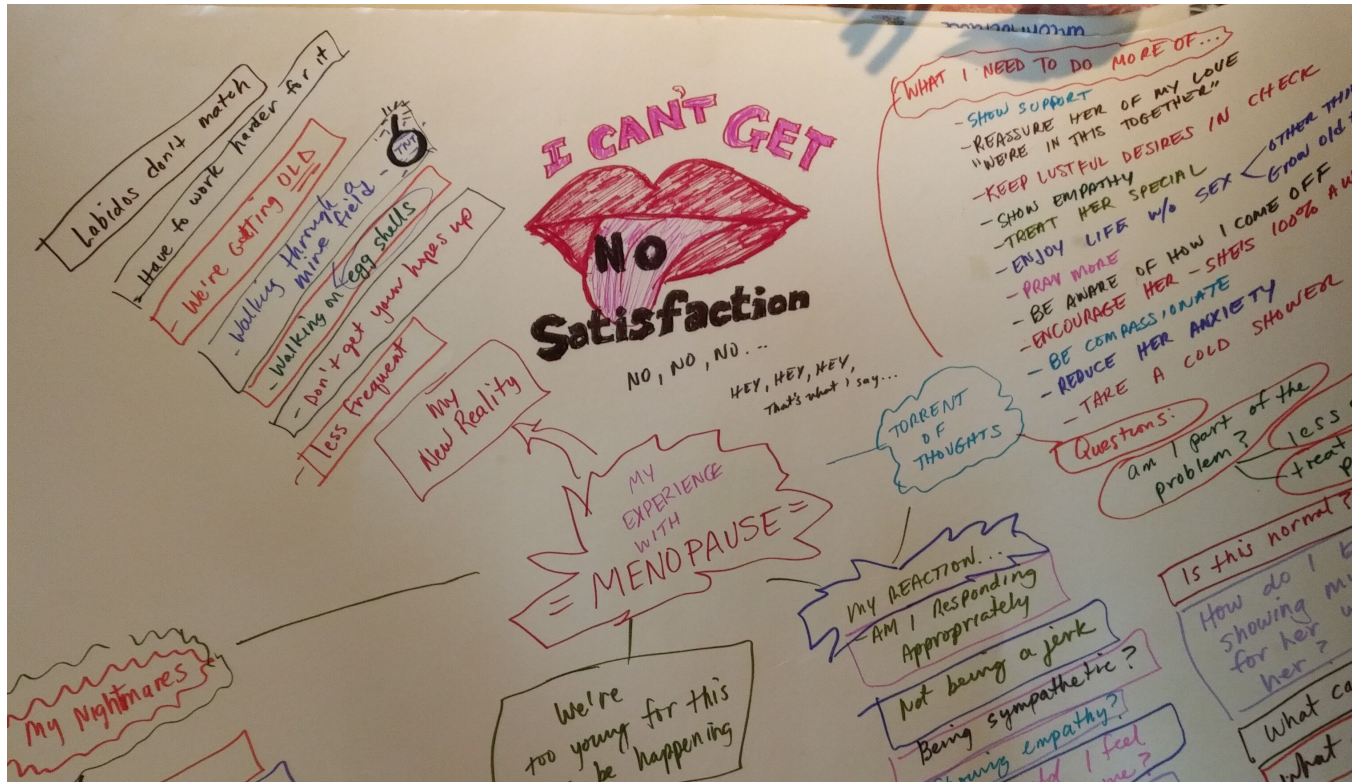 Labidos don't match
- Have to work harder for it
- We're getting OLD
- Walking through a
mine field
TNT
- Walking on egg shells
- Don't get your hopes up
- less frequent
My
New Reality
I CAN'T GET
NO
Satisfaction
NO, NO, NO...
HEY, HEY, HEY,
That's what I say...
MY
EXPERIENCE
WITH
= MENOPAUSE =
TORRENT
OF
THOUGHTS
WHAT I NEED TO DO MORE OF...
- SHOW SUPPORT
- REASSURE HER OF MY LOVE
"WE'RE IN THIS TOGETHER"
- KEEP LUSTFUL DESIRES IN CHECK
- SHOW EMPATHY
- TREAT HER SPECIAL
- ENJOY LIFE W/O SEX < OTHER
GROW OLD
- PRAY MORE
- BE AWARE OF HOW I COME OFF
- ENCOURAGE HER - SHE'S 100%
- BE COMPASSIONATE
- REDUCE HER ANXIETY
- TAKE A COLD SHOWER
Questions:
am I part of the
problem?
less
treat
Is this normal?
How do I
showing
for her
her?
What
what
MY REACTION...
- AM I Responding
Appropriately
Not being a jerk
Being sympathetic?
empathy?
I feel
My Nightmares
We're
too young for this
be happening